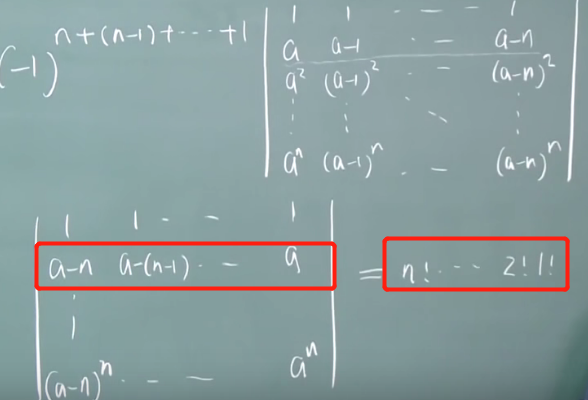 (-1)^{n+(n-1)+⋯+1}
1 1 ⋯ 1
a a-1 ⋯ a-n
a² (a-1)² ⋯ (a-n)²
⋮ ⋮ ⋱ ⋮
aⁿ (a-1)ⁿ ⋯ (a-n)ⁿ
1 1 ⋯ 1
a-n a-(n-1) ⋯ a = n!⋯2!1!
⋮
(a-n)ⁿ ⋯ aⁿ